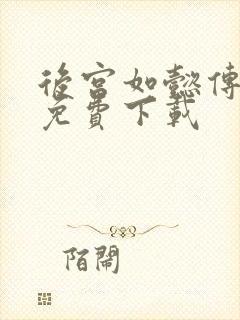 後宮如懿傳
免費下載
陌鬧